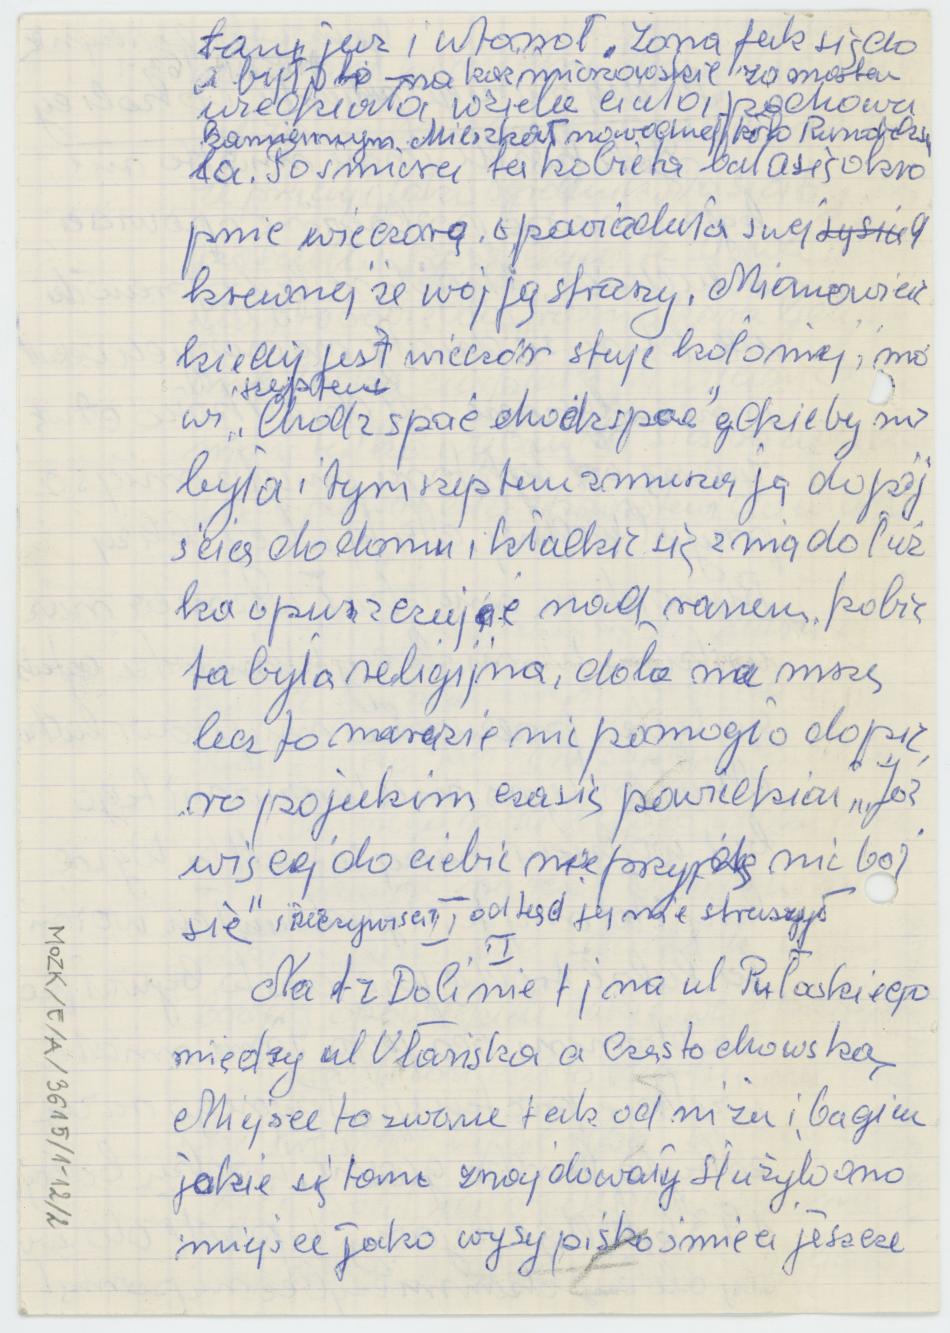 tam już i utonął. Żona jak się do
a było to na kazimierzowskie za mostem
wiedziała wzięła ciało, pochowa
kamiennym. Mieszkał nowodnej koło
ła. Po śmierci ta kobieta bała się okro
pnie wieczorą, opowiadała swej
krewnej że wój ją straszy. Mianowicie
kiedy jest wieczór staje koło niej, mó
szeptem
wi „Chodz spać chodz spać" gdzie by ni
była i tym szeptem zmusza ją do pój
ścia do domu i kładzie się z nią do łóż
ka opuszczając nad ranem. kobie
ta była religijna, dała na mszę
lecz to narazie nie pomogło dopie
ro po jakimś czasie powiedział „Już
więcej do ciebie nie przyjdę nie bój
się" i rzeczywiście odtąd jej nie straszył
II
Na tz Dolinie tj na ul Pułaskiego
między ul Ułańska a Częstochowską
Miejsce to zwane tak od niżu i bagien
jakie się tam znajdowały służyło ono
miejsce jako wysypisko śmieci jeszcze
MOZK/E/A/3615/1-12/2